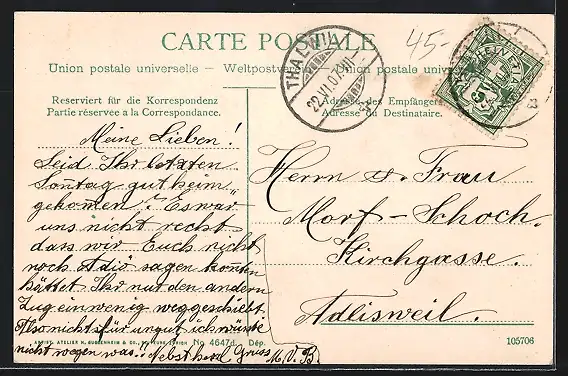 CARTE POSTALE
45-
Union postale universelle – Weltpostverein – Union postale universelle
THALWIL
22.VI.07
Reserviert für die Korrespondenz
Partie réservée à la Correspondance.
Adresse des Empfängers
Adresse du Destinataire.
Meine Lieben!
Seid Ihr letzten
Sontag gut heim„
gekomen? Es war
uns nicht recht
dass wir Euch nicht
noch Adiö sagen konnten
hättet Ihr nur den andern
Zug ein wenig weggeschiebt
Also nichts für ungut ich wüsste
nicht wegen was!! Nebst herzl Gruss M. V. B.
Herrn u. Frau
Morf-Schoch.
Kirchgasse.
Adlisweil.
ARTIST. ATELIER H. GUGGENHEIM & CO., ZÜRICH No. 4647d. Dép.
105706